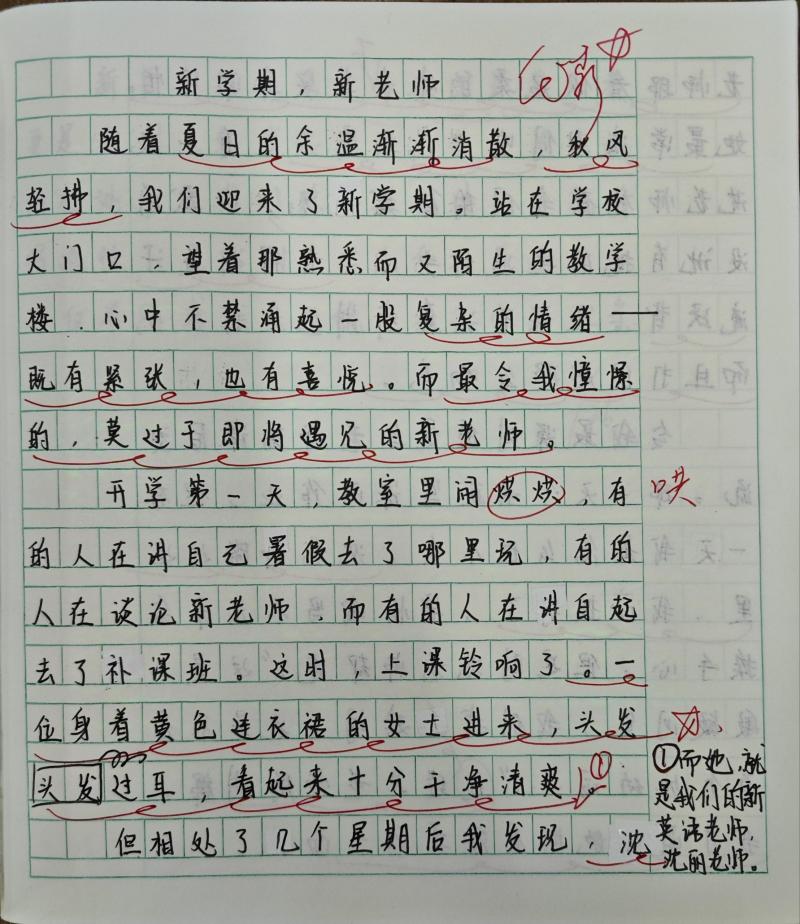 新学期，新老师
随着夏日的余温渐渐消散，秋风
轻拂，我们迎来了新学期。站在学校
大门口，望着那熟悉而又陌生的教学
楼，心中不禁涌起一股复杂的情绪——
既有紧张，也有喜悦。而最令我憧憬
的，莫过于即将遇见的新老师。
开学第一天，教室里闹烘烘，有
哄
的人在讲自己暑假去了哪里玩，有的
人在谈论新老师，而有的人在讲自起
去了补课班。这时，上课铃响了。一
位身着黄色连衣裙的女士进来，头发
头发过耳，看起来十分干净清爽。①
①而她，就
是我们的新
英语老师，
沈丽老师。
但相处了几个星期后我发现，沈